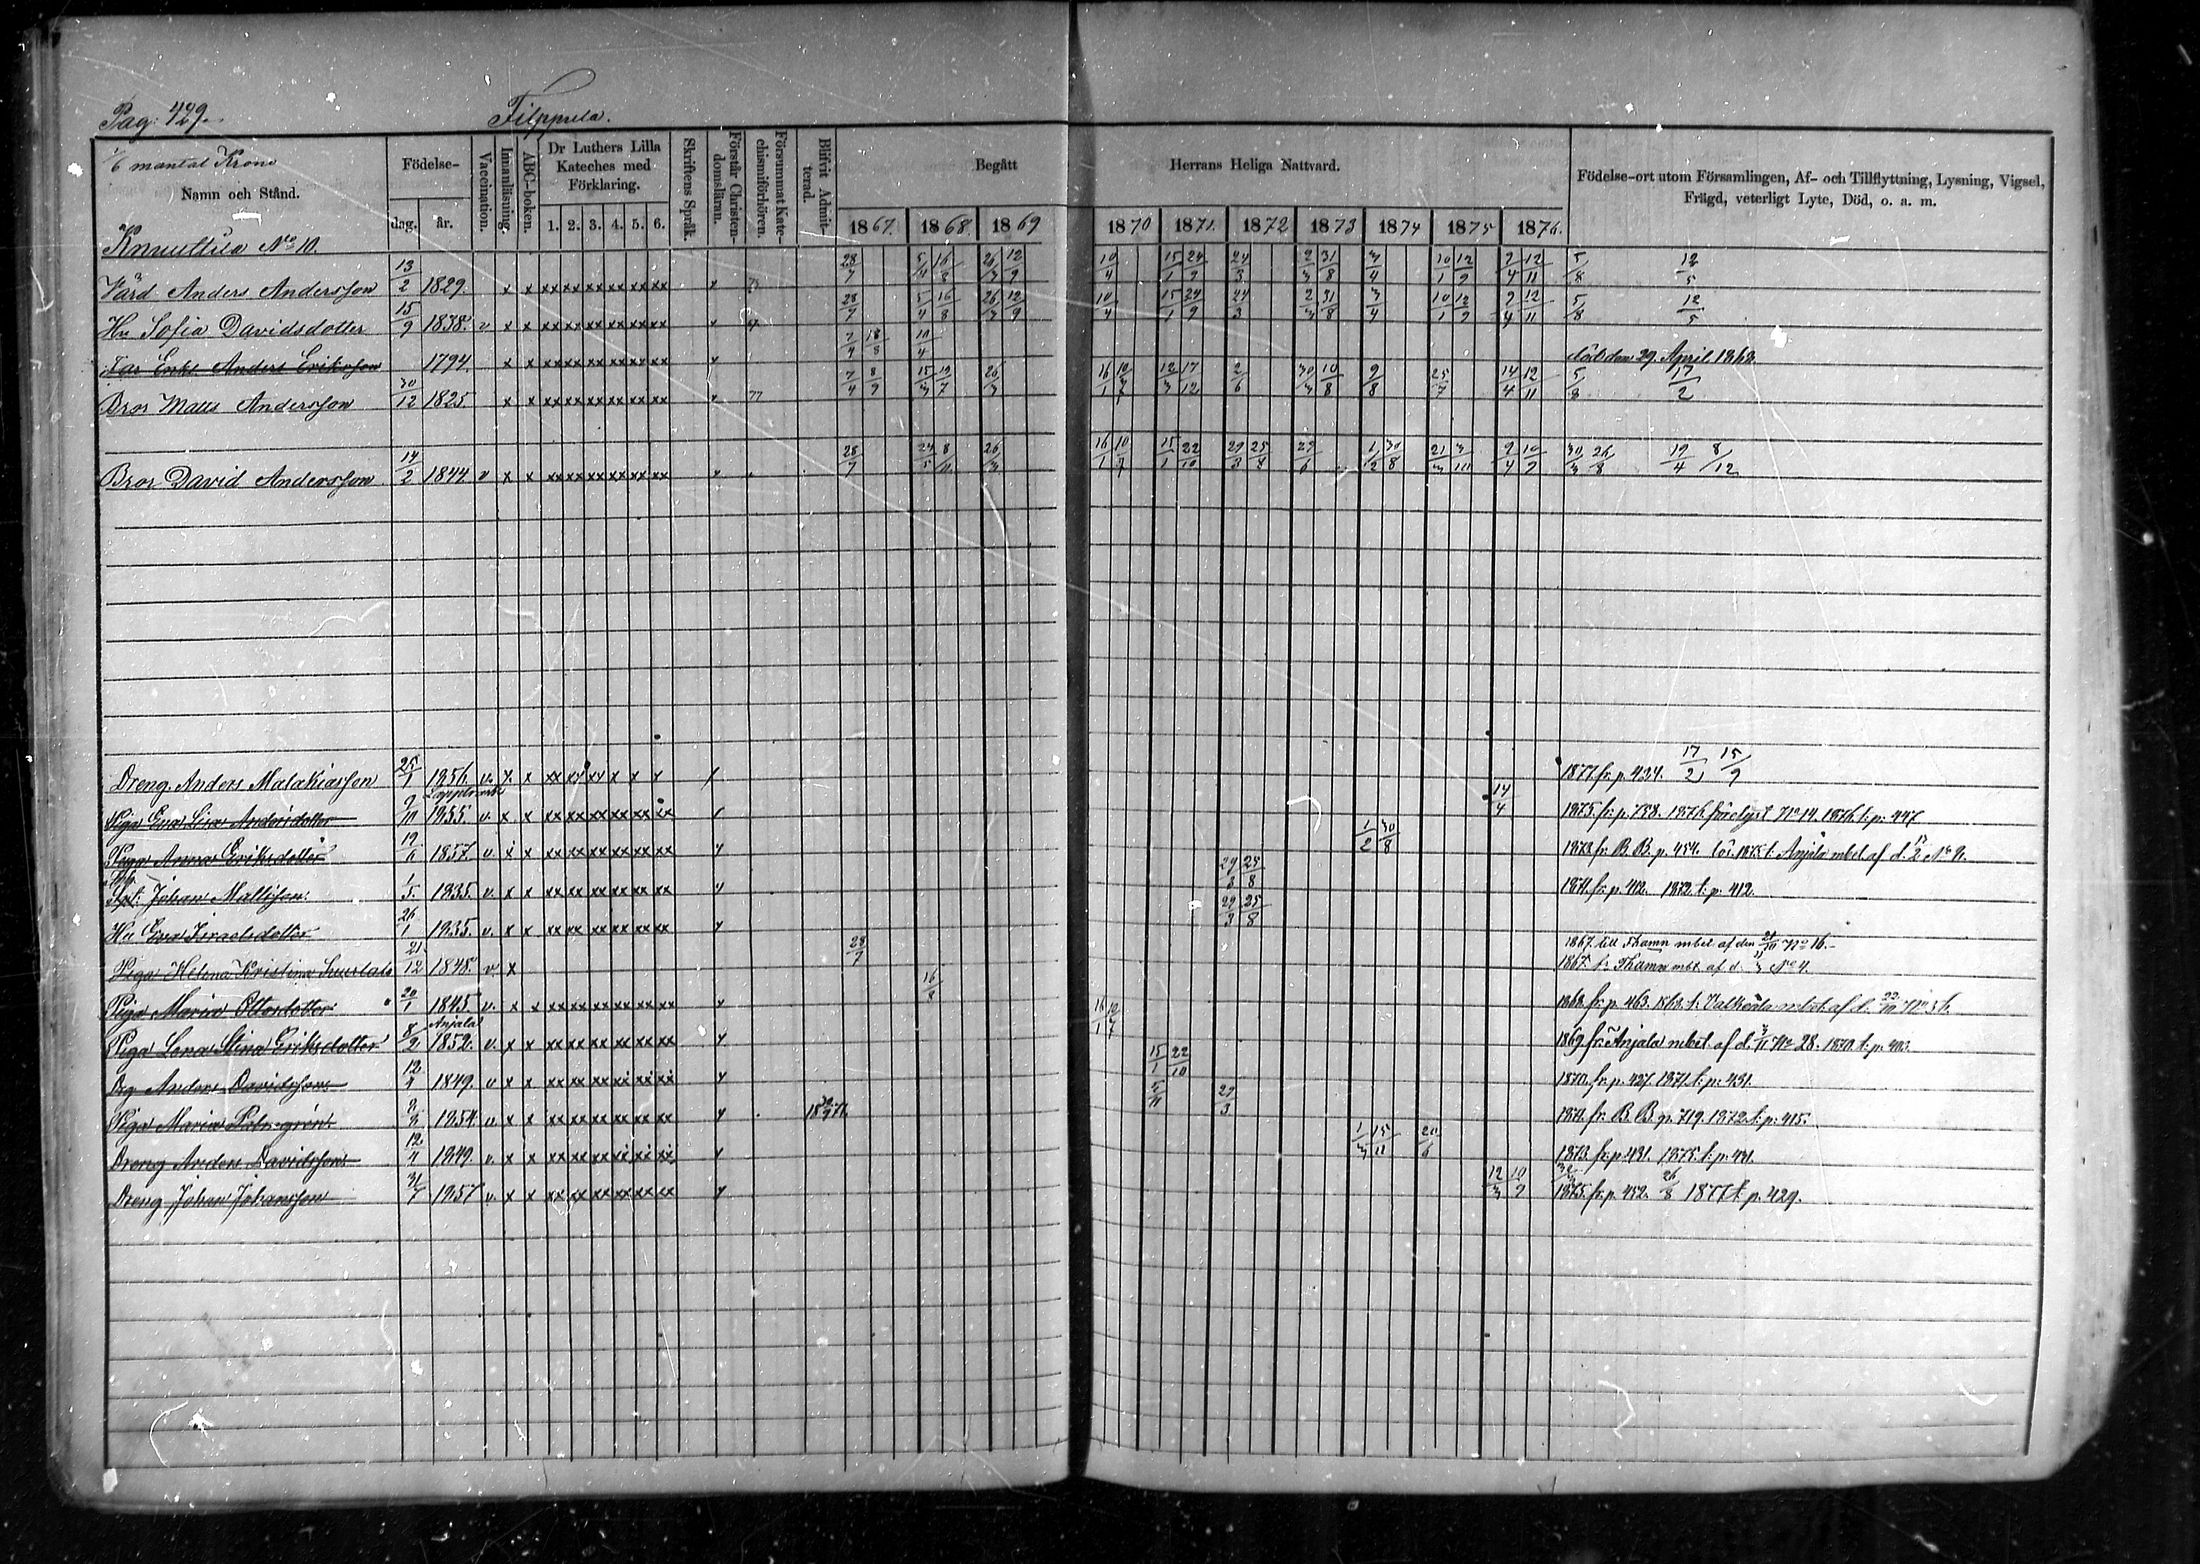 Pag: 429.
Filppula.
mantal Krono
Namn och Stånd.
Födelse-
dag. år.
Vaccination.
Innanläsning.
ABC-boken.
Dr Luthers Lilla Kateches med Förklaring.
1. 2. 3. 4. 5. 6.
Skriftens Språk.
Förstår Christendomsläran.
Försummat Katechismiförhören.
Blifvit Admitterad.
Begått Herrans Heliga Nattvard.
1867. 1868. 1869 1870 1871. 1872 1873 1874 1875 1876.
Födelse-ort utom Församlingen, Af- och Tillflyttning, Lysning, Vigsel,
Frägd, veterligt Lyte, Död, o. a. m.
No 10.
Anders Andersson 13/2 1829. x x xx xx xx xx xx xx 28/7 5/4 16/8 26/3 12/9 10/4 15/1 24/9 24/3 2/3 31/8 3/4 10/1 12/9 2/4 12/11 5/8 12/5
Hu Sofia Davidsdotter 15/9 1838. v x x xx xx xx xx xx xx 28/7 5/4 16/8 26/3 12/9 10/4 15/1 24/9 24/3 2/3 31/8 3/4 10/1 12/9 2/4 12/11 5/8 12/5
Far Enkl. Anders Eriksson 1794. x x xx xx xx xx xx xx död den 29. April 1868.
Bror Matts Andersson 30/12 1825. x x xx xx xx xx xx xx 7/4 8/9 15/3 19/7 26/3 16/1 10/7 12/3 17/12 2/6 30/3 10/8 9/8 25/7 14/4 12/11 5/8 17/2
Bror David Andersson 14/2 1844 v x x xx xx xx xx xx xx 28/7 24/5 8/11 26/3 16/1 10/7 15/1 22/10 29/3 25/8 29/6 1/2 30/8 21/3 3/10 2/4 10/9 30/3 26/8 19/4 8/12
Dreng Anders Malakiasson 25/1 1856 v. x x xx xx xx x x x 1877. fr. p. 434. 17/2 15/9
Piga Eva Lisa Andersdotter 9/10 1855. v. x x xx xx xx xx xx xx 14/4 1875. fr. p. 758. 1876. förelyst No 14. 1876. t. p. 447
Piga Anna Eriksdotter 19/6 1857. v. x x xx xx xx xx xx xx 1/2 30/8 1873. fr. B. B. p. 454. 1875. t. Anjala mbet. af d.
Johan Mattsson. 1/5 1835. v. x x xx xx xx xx xx xx 29/3 25/8 1871. fr. p. 412. 1872. t. p. 412.
Hu Eva Israelsdotter 26/1 1835. v. x x xx xx xx xx xx xx 29/3 25/8
Piga Helena Kristina 21/12 1848. v. x 28/7 1867. till Fhamn mbet af den 21/10 No 16.
1867. fr. Fhamn mbt. af d. No 4.
Piga Maria Ottosdotter 20/1 1845. v. x x xx xx xx xx xx xx 16/8 1868. fr. p. 463. 1868. t. Valkeala mbet. af d. 22/10
Anjala
Piga Lena Stina Eriksdotter 8/2 1852. v. x x xx xx xx xx xx xx 16/1 10/7 1869 fr. Anjala mbet. af d. No 28. 1870. t. p.
Dg Anders Davidsson 12/4 1849. v x x xx xx xx xx xx xx 15/1 22/10 1870. fr. p. 437. 1871. t. p. 431.
Piga Maria Palmgrén 1854. v. x x xx xx xx xx xx xx 5/11 29/3 1871. fr. B. B. p. 719. 1872. t. p. 415.
Dreng Anders Davidsson 12/4 1849. v. x x xx xx xx xx xx xx 1/3 15/11 20/6 1873. fr. p. 431. 1875. t. p. 431.
Dreng Johan Johansson 31/7 1857 v. x x xx xx xx xx xx xx 12/3 10/9 1875. fr. p. 452. 26/8 1877 t. p. 429.